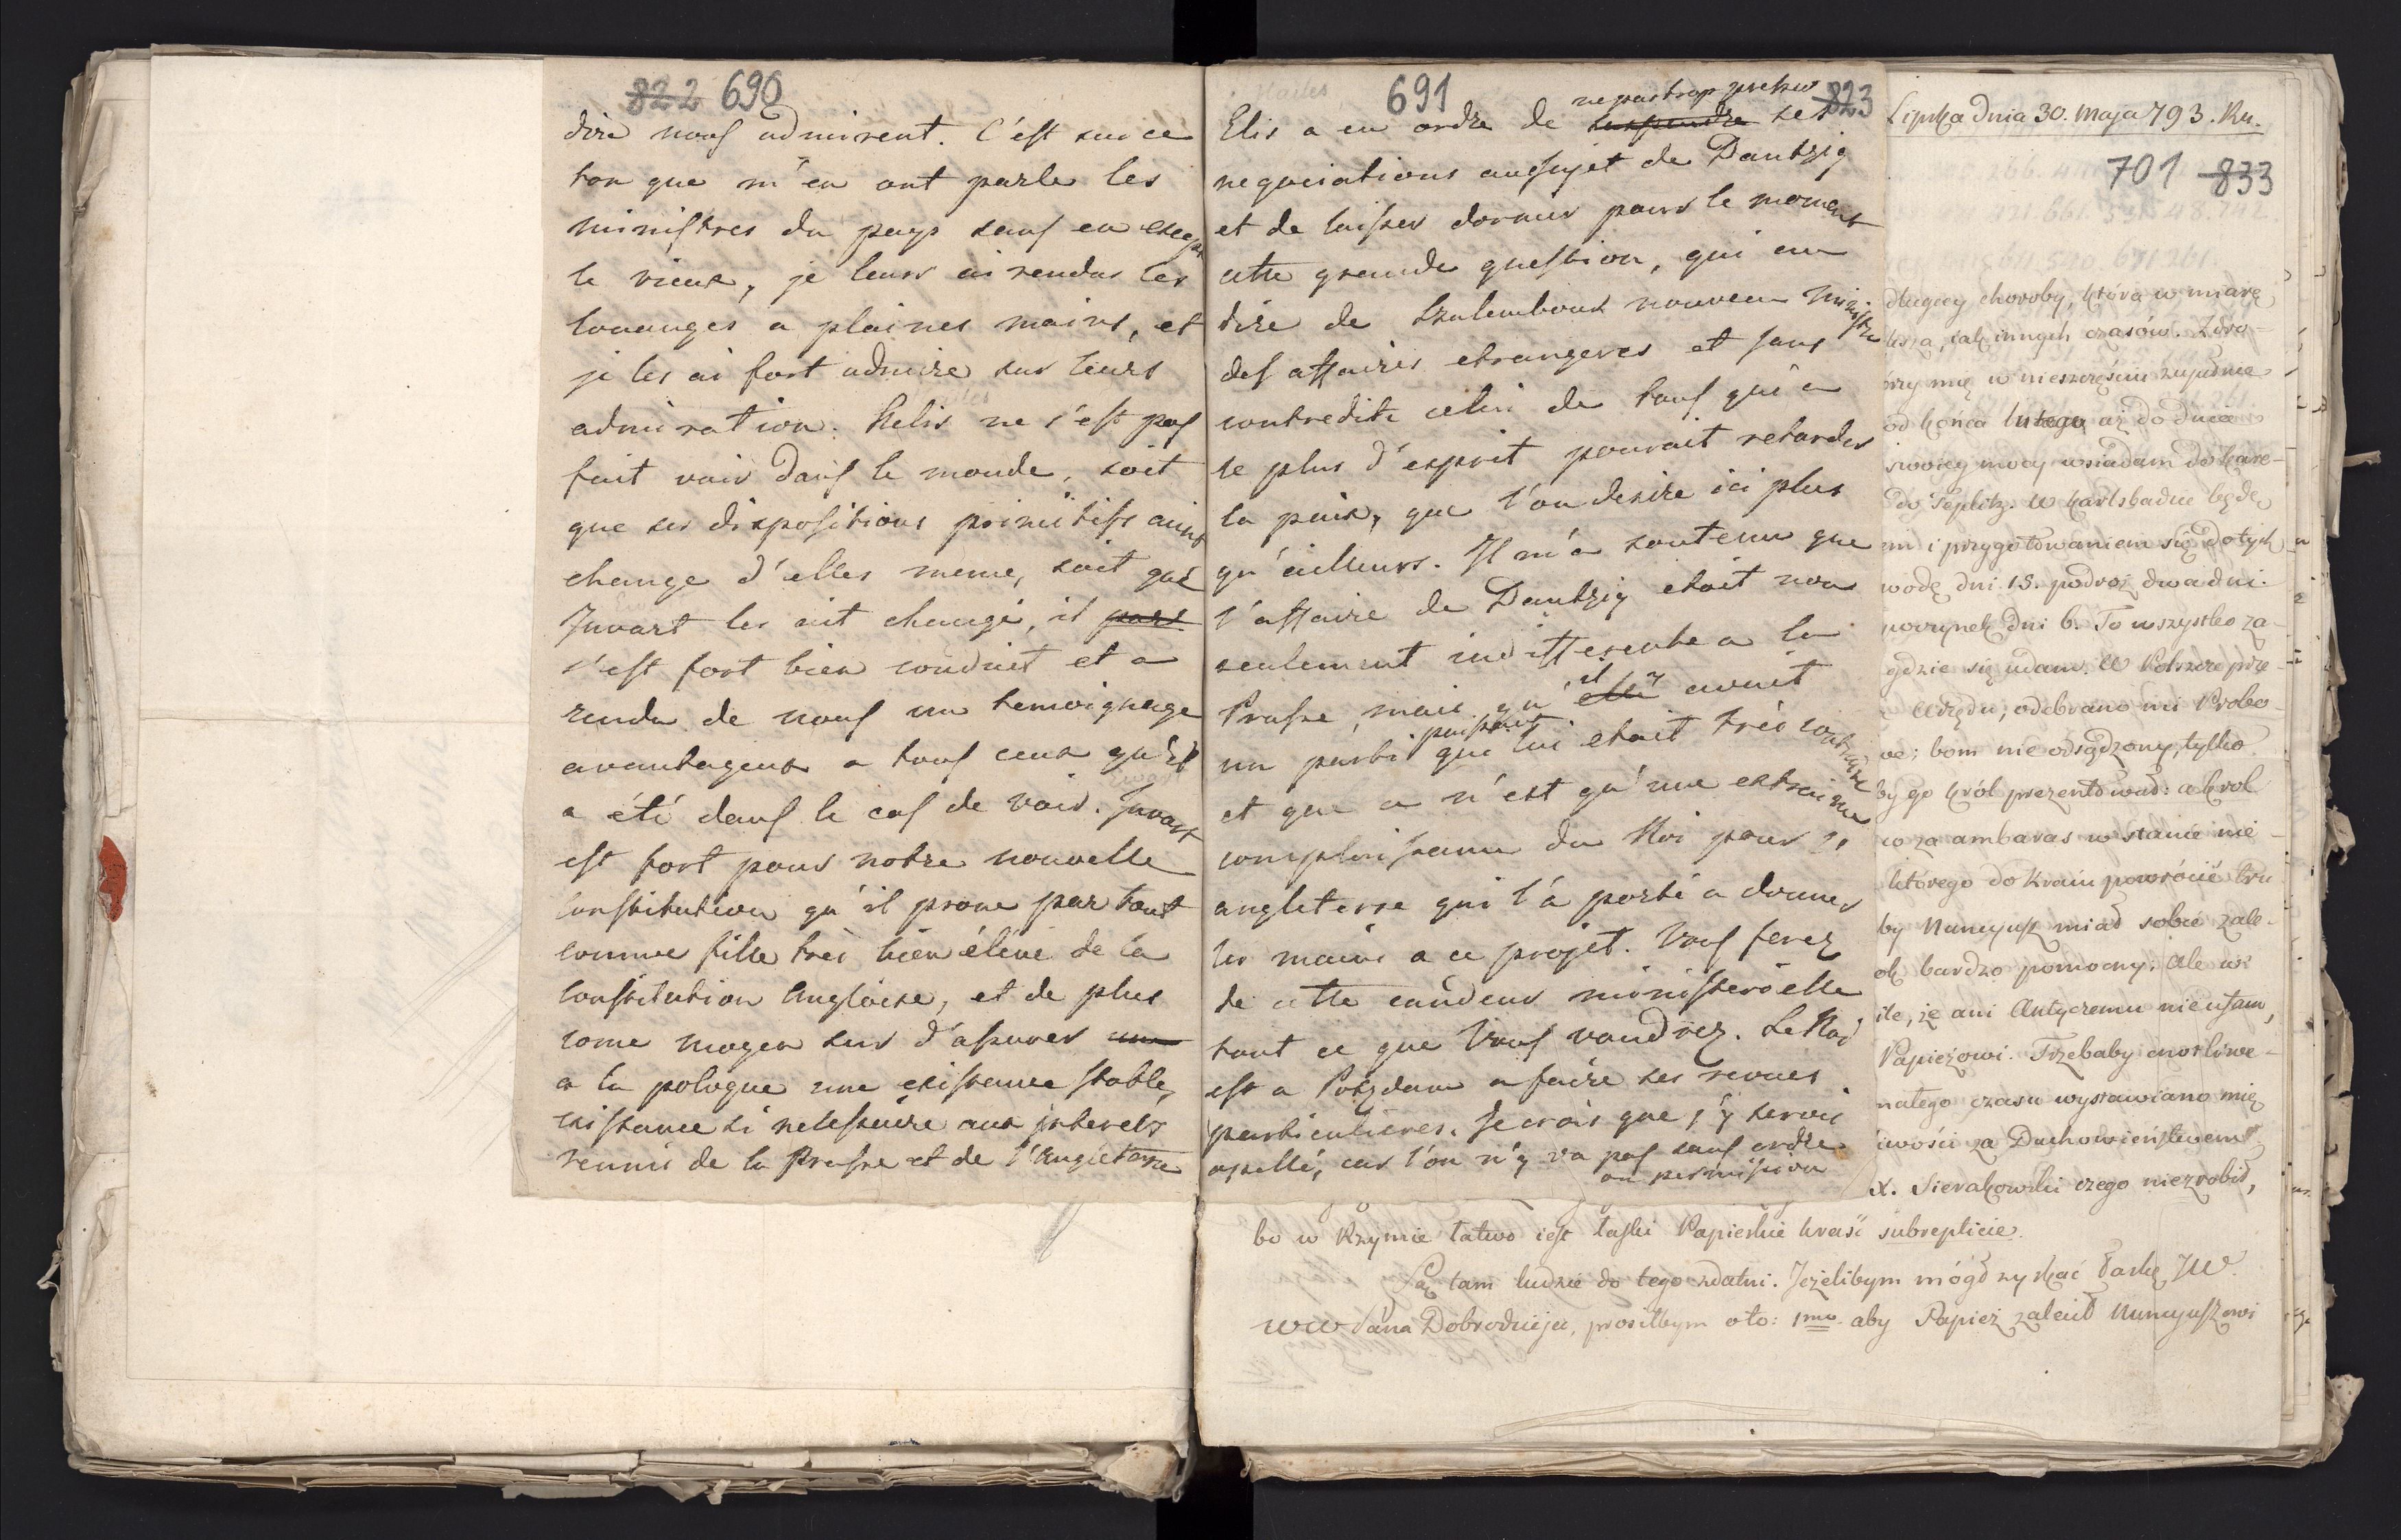 822 690
dire nous admirent. C'est sur ce
ton que m'en ont parle les
ministres du pays sans en except
le vieux, je leur ai rendu les
louanges a plaines mains, et
je les ai fort admire sur leurs
admiration. Helis ne s'est pas
fait voir dans le monde, soit
que ses dispositions primitifs aint
change d'elles meme, soit que
Juvart les ait changé, il
s'est fort bien conduit et a
rendu de nous un temoignage
avantageux a tous ceux qu'il
a été dans le cas de voir. Juvart
est fort pour notre nouvelle
Constitution qu'il prone partout
comme fille trés bien élévé de la
Constitution Angloise, et de plus
come moyen sur d'assurer un
a la pologne une existance stable,
existance si nelessaire aux interets
reunis de la Prusse et de l'Angletorre
691
823
ne pas trop préher
Elis a eu ordre de suspendre ses
negociations au sujet de Dantzig
et de laisser dormir pour le moment
cette grande question, qui au
dire de Szulembourk nouveau Ministre
des affaires etrangeres et sans
contredite celui de tous qui a
le plus d'esprit pourrait retarder
la paix, que l'on desire ici plus
qu'ailleurs. Il m'a soutenu que
l'affaire de Dantzig etait non
seulement indifferente a la
Prusse, mais qu'il y avait
un parti puissant que lui etait trés contraire
et que ce n'est qu'une extreime
complaisance du Roi pour l'
angleterre qui l'a porté a donner
les mains a ce projet. Vous ferez
de cette candeur ministerielle
tout ce que Vous voudrez. Le Roi
est a Potzdam a faire ses revues
particulieres. Je crois que j'y serois
apellé, car l'on n'y va pas sans ordre
ou permission
Lipska dnia 30. Maja 793. Ru.
701 833
długiey choroby, która w miarę
jak innych czasów. Zdro-
mię w nieszczęściu zupełnie
od końca lutego aż do dnia
swoiey mocy wsiadam do kare-
do Teplitz. W Karlsbadzie będę
em i przygotowaniem się do tych
wodę dni 15. podroż dwa dni.
dni 6. To wszystko za-
gdzie się udam. W Polszcze prze-
Urzędu, odebrano mi Probo-
we; bom nie odsądzony, tylko
by go król prezentował: a krol
co za ambaras w stanie nie-
którego do Kraiu powrócić tru-
by Nuncyusz miał sobie zale-
ok bardzo pomocny: Ale wi
ile, że ani Antyczemu nie ufam,
Papieżowi. Trzebaby cnotliwe-
małego czasu wystawiano mię
iwości za Duchowieństwem
X. Sierakowski czego niezrobił,
bo w Rzymie łatwo iest łaski Papieskie kraść subrepticie.
Są tam ludzie do tego zdatni. Jeżelibym mógł zyskać łaskę JW.
WW Pana Dobrodzieja, prosiłbym oto: 1mo aby Papież zalecił Nuncyuszowi